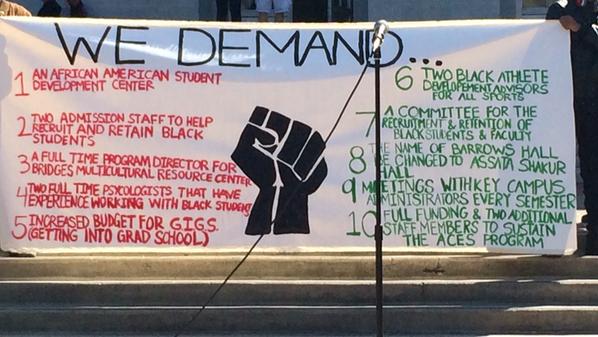 WE DEMAND...
1 AN AFRICAN AMERICAN STUDENT
DEVELOPMENT CENTER
2 TWO ADMISSION STAFF TO HELP
RECRUIT AND RETAIN BLACK
STUDENTS
3 A FULL TIME PROGRAM DIRECTOR FOR
BRIDGES MULTICULTURAL RESOURCE CENTER
4 TWO FULL TIME PSYCOLOGISTS THAT HAVE
EXPERIENCE WORKING WITH BLACK STUDENT
5 INCREASED BUDGET FOR G.I.G.S.
(GETTING INTO GRAD SCHOOL)
6 TWO BLACK ATHLETE
DEVELOPEMENT ADVISORS
FOR ALL SPORTS
7 A COMMITTEE FOR THE
RECRUITMENT & RETENTION OF
BLACK STUDENTS & FACULTY
8 THE NAME OF BARROWS HALL
BE CHANGED TO ASSATA SHAKUR
HALL
9 MEETINGS WITH KEY CAMPUS
ADMINISTRATORS EVERY SEMESTER
10 FULL FUNDING & TWO ADDITIONAL
STAFF MEMBERS TO SUSTAIN
THE ACES PROGRAM